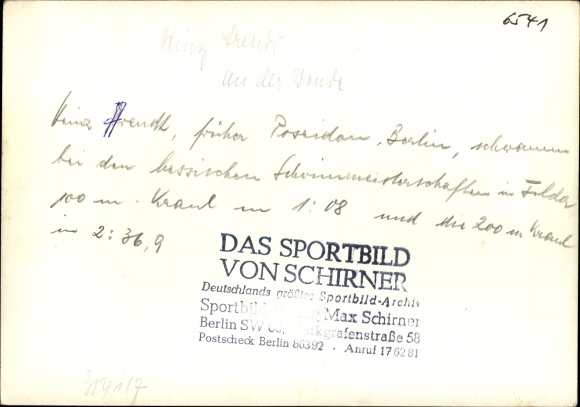 6541
Heinz Arendt
an der Wende
Heinz Arendt, früher Poseidon, Berlin, schwamm
bei den hessischen Schwimmeisterschaften in Fulda
100 m - Kraul in 1:08 und die 200 m Kraul
in 2:36,9
DAS SPORTBILD
VON SCHIRNER
Deutschlands größtes Sportbild-Archiv
Sportbild Max Schirner
Berlin SW 68, Markgrafenstraße 58
Postscheck Berlin 86392 · Anruf 176281